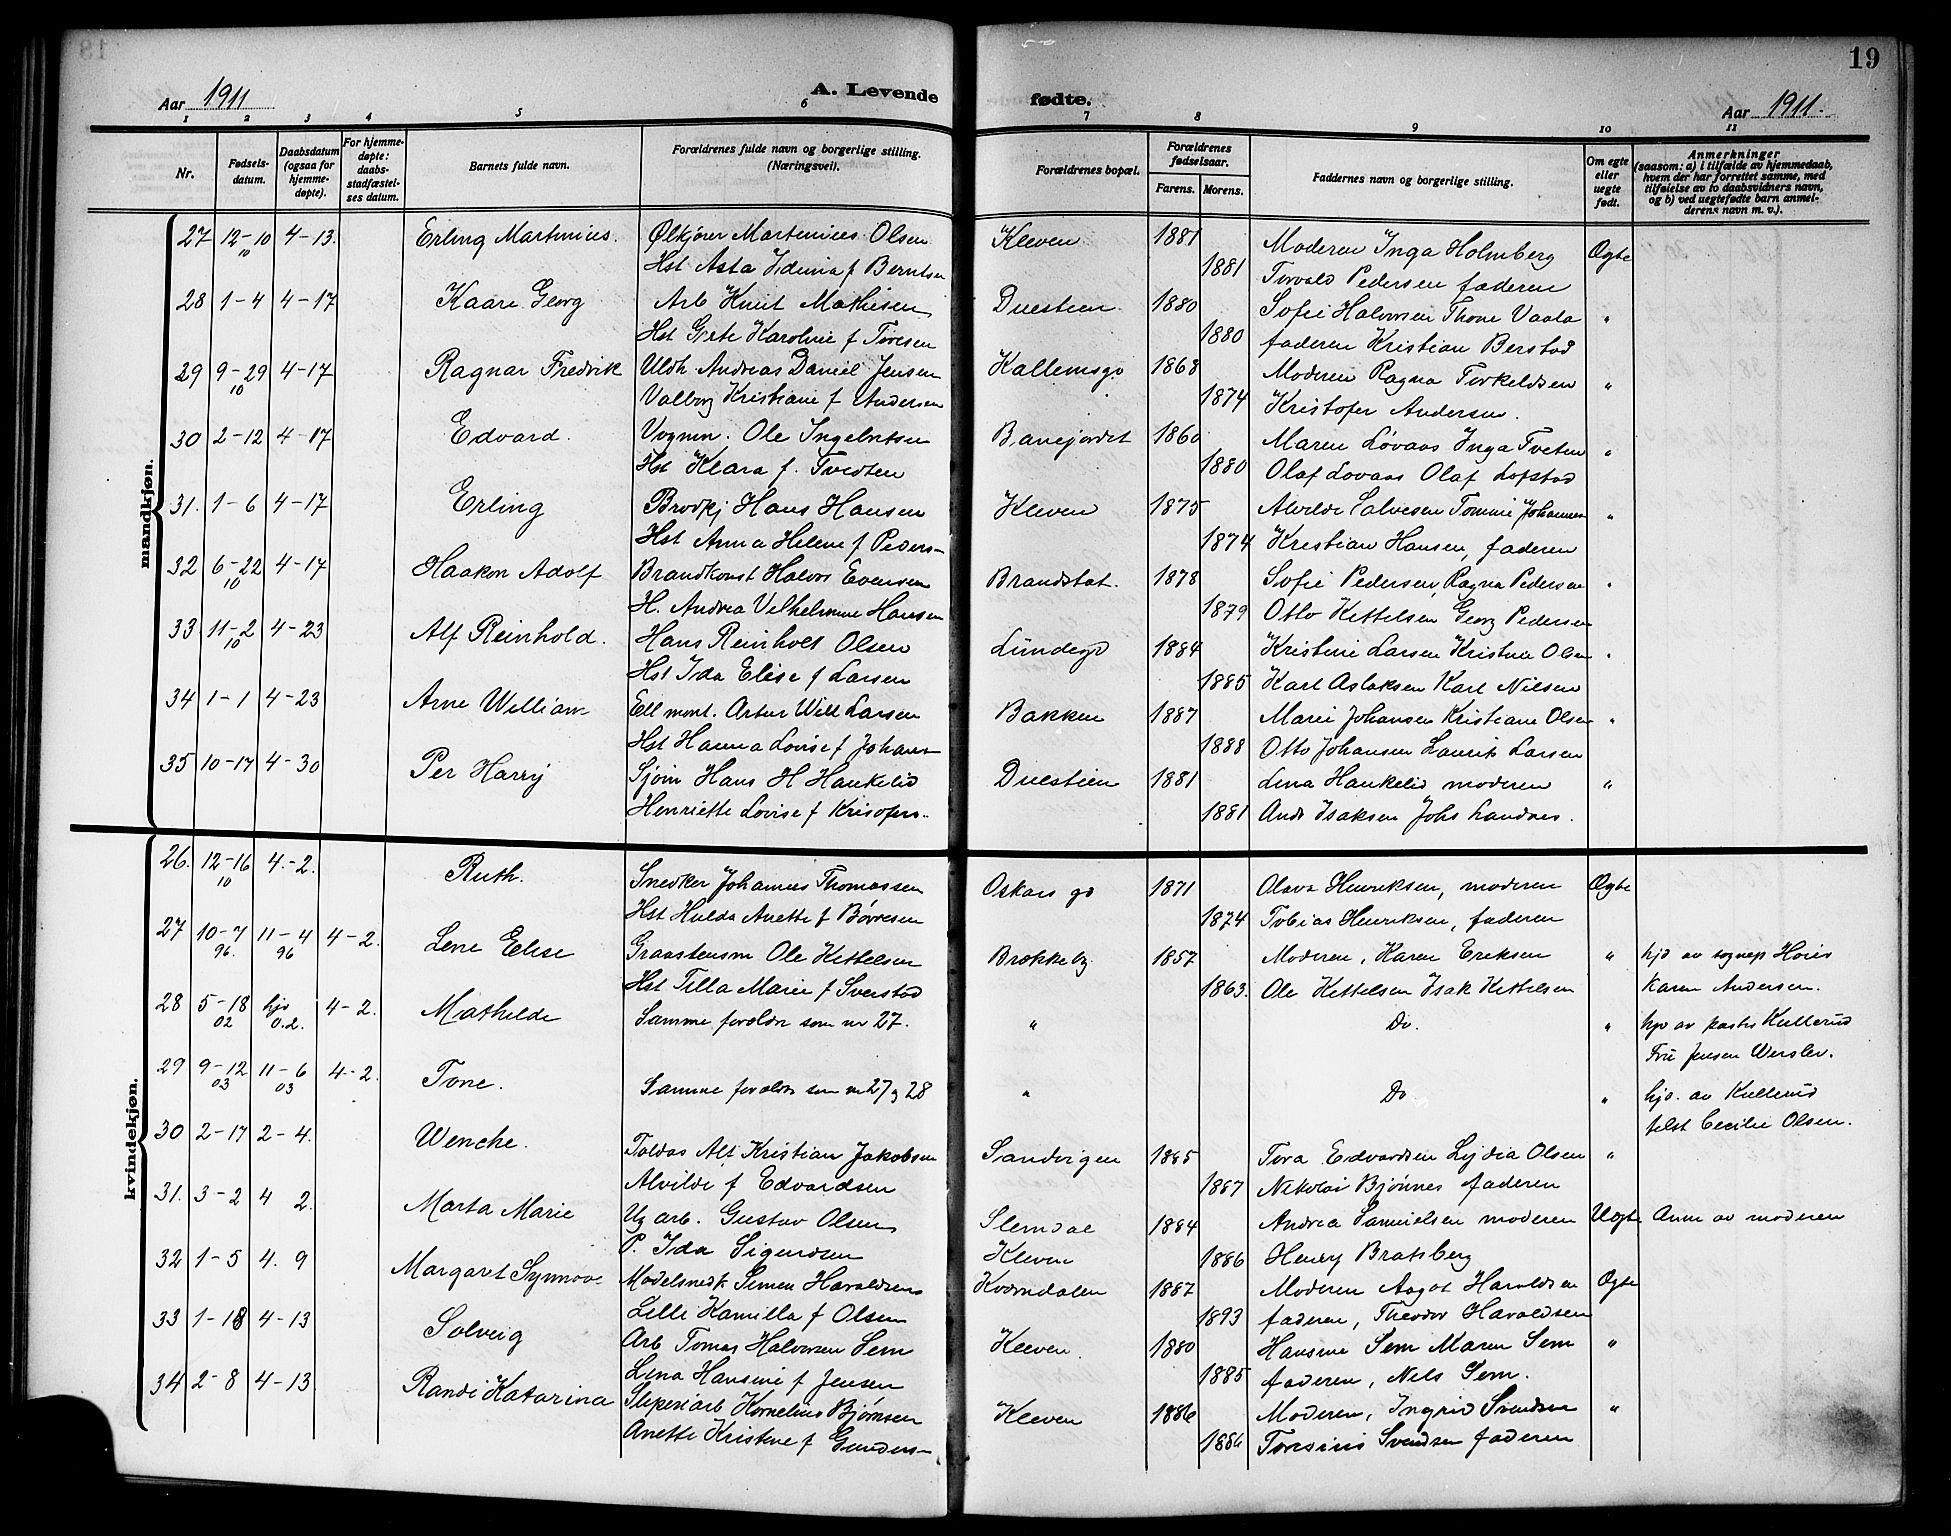 19
Aar 1911
A. Levende
fødte.
Aar 1911.
1 2 3 4 5 6 7 8 9 10 11
Nr.
Fødsels-
datum.
Daabsdatum
(ogsaa for
hjemme-
døpte).
For hjemme-
døpte:
daabs-
stadfæstel-
ses datum.
Barnets fulde navn.
Forældrenes fulde navn og borgerlige stilling.
(Næringsvei).
Forældrenes bopæl.
Forældrenes
fødselsaar.
Farens. Morens.
Faddernes navn og borgerlige stilling.
Om egte
eller
uegte
født.
Anmerkninger
(saasom: a) i tilfælde av hjemmedaab,
hvem der har forrettet samme, med
tilføielse av to daabsvidners navn,
og b) ved uegtefødte barn anmel-
derens navn m. v.).
mandkjøn.
27 12-10 10 4-13. Erling Martinius. Ølkjører Martinius Olsen Kleven 1881 Moderen Inga Holmberg Ægte
Hst Asta Idinia f Berntsen 1881 Torvald Pedersen faderen
28 1-4 4-17 Kaare Georg Arb Knut Mathisen Duestien 1880 Sofie Halvorsen Thone Vaala "
Hst Grete Karoline f Toresen 1880 faderen Kristian Berstad
29 9-29 10 4-17 Ragnar Fredrik Uldh Andreas Daniel Jensen Kallemsgo 1868 Moderen Ragna Torkeldsen "
Valborg Kristiane f Andersen 1874 Kristofer Andersen.
30 2-12 4-17 Edvard. Vognm. Ole Ingebritsen Banejordet 1860 Maren Lövaas Inga Tveten "
Hst Klara f. Tvedten 1880 Olaf Lovaas Olaf Lofstad
31. 1-6 4-17 Erling Brodkj Hans Hansen Kleven 1875 Alvilde Salvesen Tommine Johannes "
Hst Anna Helene f Peders- 1874 Kristian Hansen, faderen
32 6-22 10 4-17 Haakon Adolf Brandkonst Halvor Evensen Brandstat. 1878 Sofie Pedersen, Ragna Pedersen "
H. Andrea Vilhelmine Hansen 1879 Otto Kittelsen Georg Pedersen
33 11-2 10 4-23 Alf Reinhold. Hans Reinholt Olsen Lundego 1884 Kristine Larsen Kristine Olsen "
Hst Ida Elise f Larsen 1885 Karl Aslaksen Karl Nilsen
34 1-1 4-23 Arne William Ell mont. Artur Will Larsen Bakken 1887 Marie Johansen Kristiane Olsen "
Hst Hanna Lovise f Johans- 1888 Otto Johansen Laurits Larsen
35 10-17 4-30 Per Harry Sjøm Hans H Haukelid Duestien 1881 Lina Haukelid moderen "
Henriette Lovise f Kristofers- 1881 Andr Isaksen Johs Landnes.
kvindekjøn.
26. 12-16 10 4.-2. Ruth. Snedker Johannes Thomassen Oskars go 1871 Olava Henriksen, moderen Ægte
Hst Hulda Anette f Børresen 1874 Tobias Henriksen, faderen
27 10-7 96. 11-4 96 4-2. Lene Elise Graastensm Ole Kittelsen Brekkeby 1857 Moderen, Karen Eriksen " hjd av sognep Höies
Hst Tilla Marie f Sverstad 1863. Ole Kittelsen Isak Kittelsen Karen Andersen.
28 5-18 02 hjd o.d. 4-2. Mathilde Samme foreldr som nr 27. " Do. " hjd av pastor Kullerud
Fru Jensen Wersler.
29 9-12 03 11-6 03 4-2. Tone. Samme foreldr som nr 27 og 28 " Do. " hjd. av Kullerud
jdst Cecilie Olsen.
30 2-17 2-4. Wenche. Toldas Alf Kristian Jakobsen Sandvigen 1885 Tora Edvardsen Lydia Olsen "
Alvilde f Edvardsen 1887 Nikolai Bjönnes faderen
31. 3-2 4 2. Marta Marie Ug arb. Gustav Olsen Slemdal 1884 Andrea Samuelsen moderen Uægte Anm av moderen
P. Ida Sigurdsen Kleven 1886 Henry Bratsberg
32 1-5 4. 9 Margaret Synnove Modelsnedk Simen Haraldsen Kvorndalen 1887 Moderen Aagot Haraldsen Ægte
Lilli Kamilla f Olsen 1893 faderen, Theodor Haraldsen
33 1-18 4-13 Solveig Arb Tomas Halvorsen Sem Kleven 1880 Hansine Sem Maren Sem "
Lina Hansine f Jensen 1885 faderen, Nels Sem.
34 2-8 4-13 Randi Katarina Sliperiarb Kornelius Bjørnsen Kleven 1886 Moderen, Ingrid Svendsen "
Anette Kristine f Gunders- 1886 Toresius Svendsen faderen